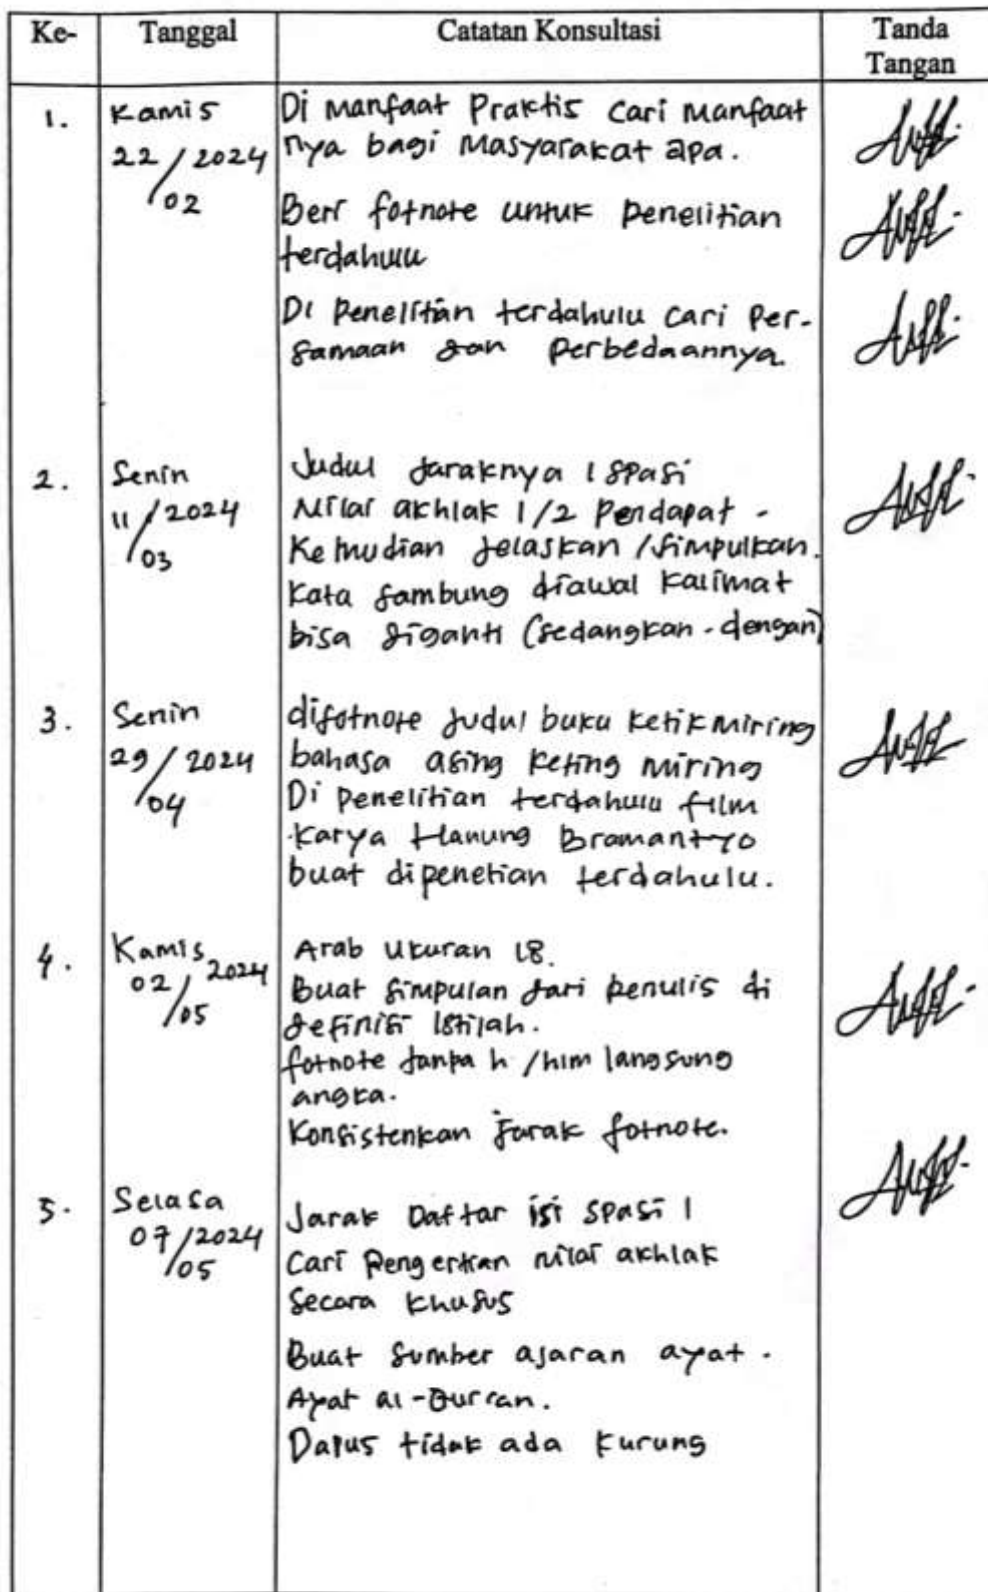 Ke- Tanggal Catatan Konsultasi Tanda Tangan
1. Kamis 22/02 2024
Di manfaat Praktis cari manfaat
nya bagi Masyarakat apa.
Beri fotnote untuk penelitian
terdahulu
Di penelitian terdahulu cari Per-
samaan dan perbedaannya.
2. Senin 11/03 2024
Judul Jaraknya 1 spasi
Nilai akhlak 1/2 Pendapat -
Kemudian jelaskan / simpulkan.
Kata sambung diawal kalimat
bisa diganti (sedangkan - dengan)
3. Senin 29/04 2024
difotnote judul buku ketik miring
bahasa asing keting miring
Di penelitian terdahulu film
karya Hanung Bramantyo
buat dipenetian terdahulu.
4. Kamis 02/05 2024
Arab Ukuran 18.
Buat simpulan dari penulis di
definisi Istilah.
fotnote tanpa h /hlm langsung
angka.
Konsistenkan jarak fotnote.
5. Selasa 07/05 2024
Jarak Daftar isi spasi 1
Cari Pengertian nilai akhlak
Secara khusus
Buat Sumber ajaran ayat -
Ayat al-Qur'an.
Dapus tidak ada kurung